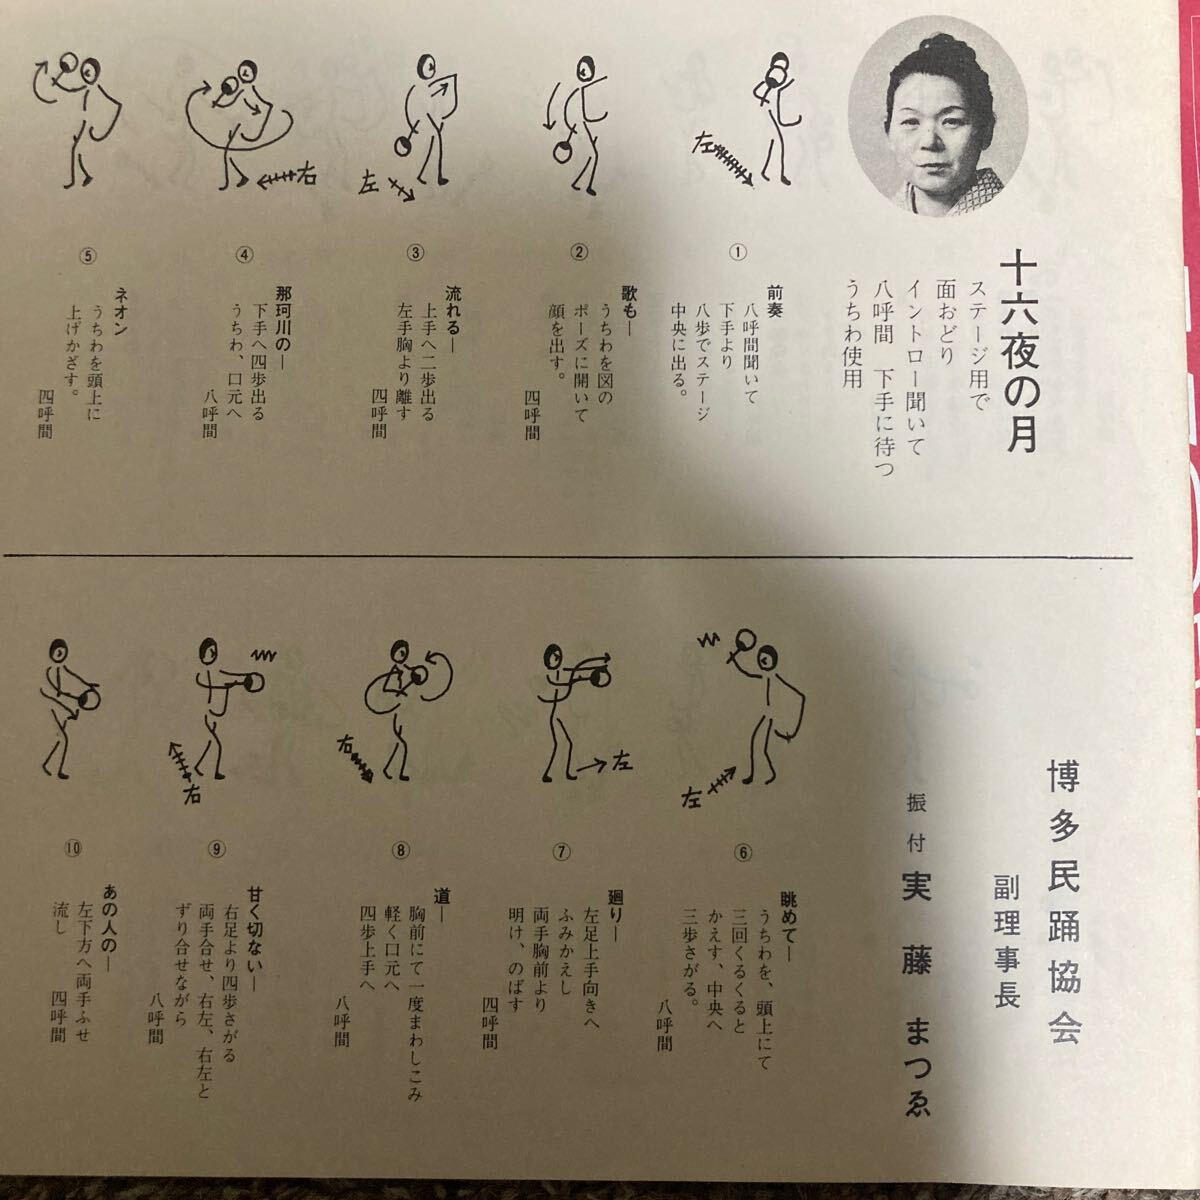 十六夜の月
ステージ用で
面おどり
イントロー聞いて
八呼間　下手に待つ
うちわ使用
①
前奏
八呼間聞いて
下手より
八歩でステージ
中央に出る。
左
②
歌も―
うちわを図の
ポーズに開いて
顔を出す。
四呼間
③
流れる―
上手へ二歩出る
左手胸より離す
四呼間
左
④
那珂川の―
下手へ四歩出る
うちわ、口元へ
八呼間
右
⑤
ネオン
うちわを頭上に
上げかざす。
四呼間
博多民踊協会
副理事長
振付　実藤まつゑ
⑥
眺めて―
うちわを、頭上にて
三回くるくると
かえす、中央へ
三歩さがる。
八呼間
左
⑦
廻り―
左足上手向きへ
ふみかえし
両手胸前より
明け、のばす
四呼間
左
⑧
道―
胸前にて一度まわしこみ
軽く口元へ
四歩上手へ
八呼間
右
⑨
甘く切ない―
右足より四歩さがる
両手合せ、右左、右左と
ずり合せながら
八呼間
右
⑩
あの人の―
左下方へ両手ふせ
流し
四呼間